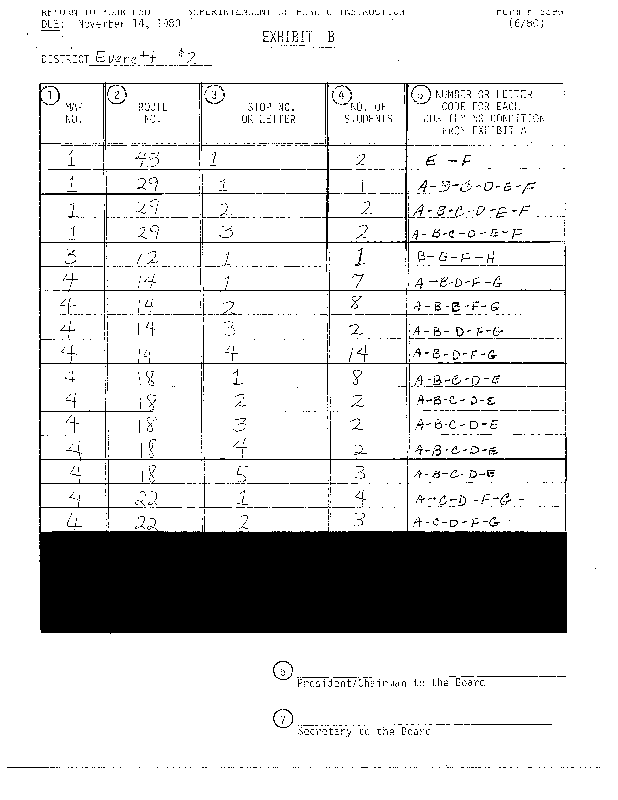 DUE: November 14, 1980 (6/80)
EXHIBIT B
DISTRICT Everett #2
1 MAP NO. 2 ROUTE NO. 3 STOP NO. OR LETTER 4 NO. OF STUDENTS 5 NUMBER OR LETTER CODE FOR EACH CONDITION FROM EXHIBIT A
1 43 1 2 E-F
1 29 1 1 A-B-C-D-E-F
1 29 2 2 A-B-C-D-E-F
1 29 3 2 A-B-C-D-E-F
3 12 1 1 B-G-F-H
4 14 1 7 A-B-D-F-G
4 14 2 8 A-B-B-F-G
4 14 3 2 A-B-D-F-G
4 14 4 14 A-B-D-F-G
4 18 1 8 A-B-C-D-E
4 18 2 2 A-B-C-D-E
4 18 3 2 A-B-C-D-E
4 18 4 2 A-B-C-D-E
4 18 5 3 A-B-C-D-E
4 22 1 4 A-C-D-F-G-
4 22 2 3 A-C-D-F-G
6
President/Chairman to the Board
7
Secretary to the Board